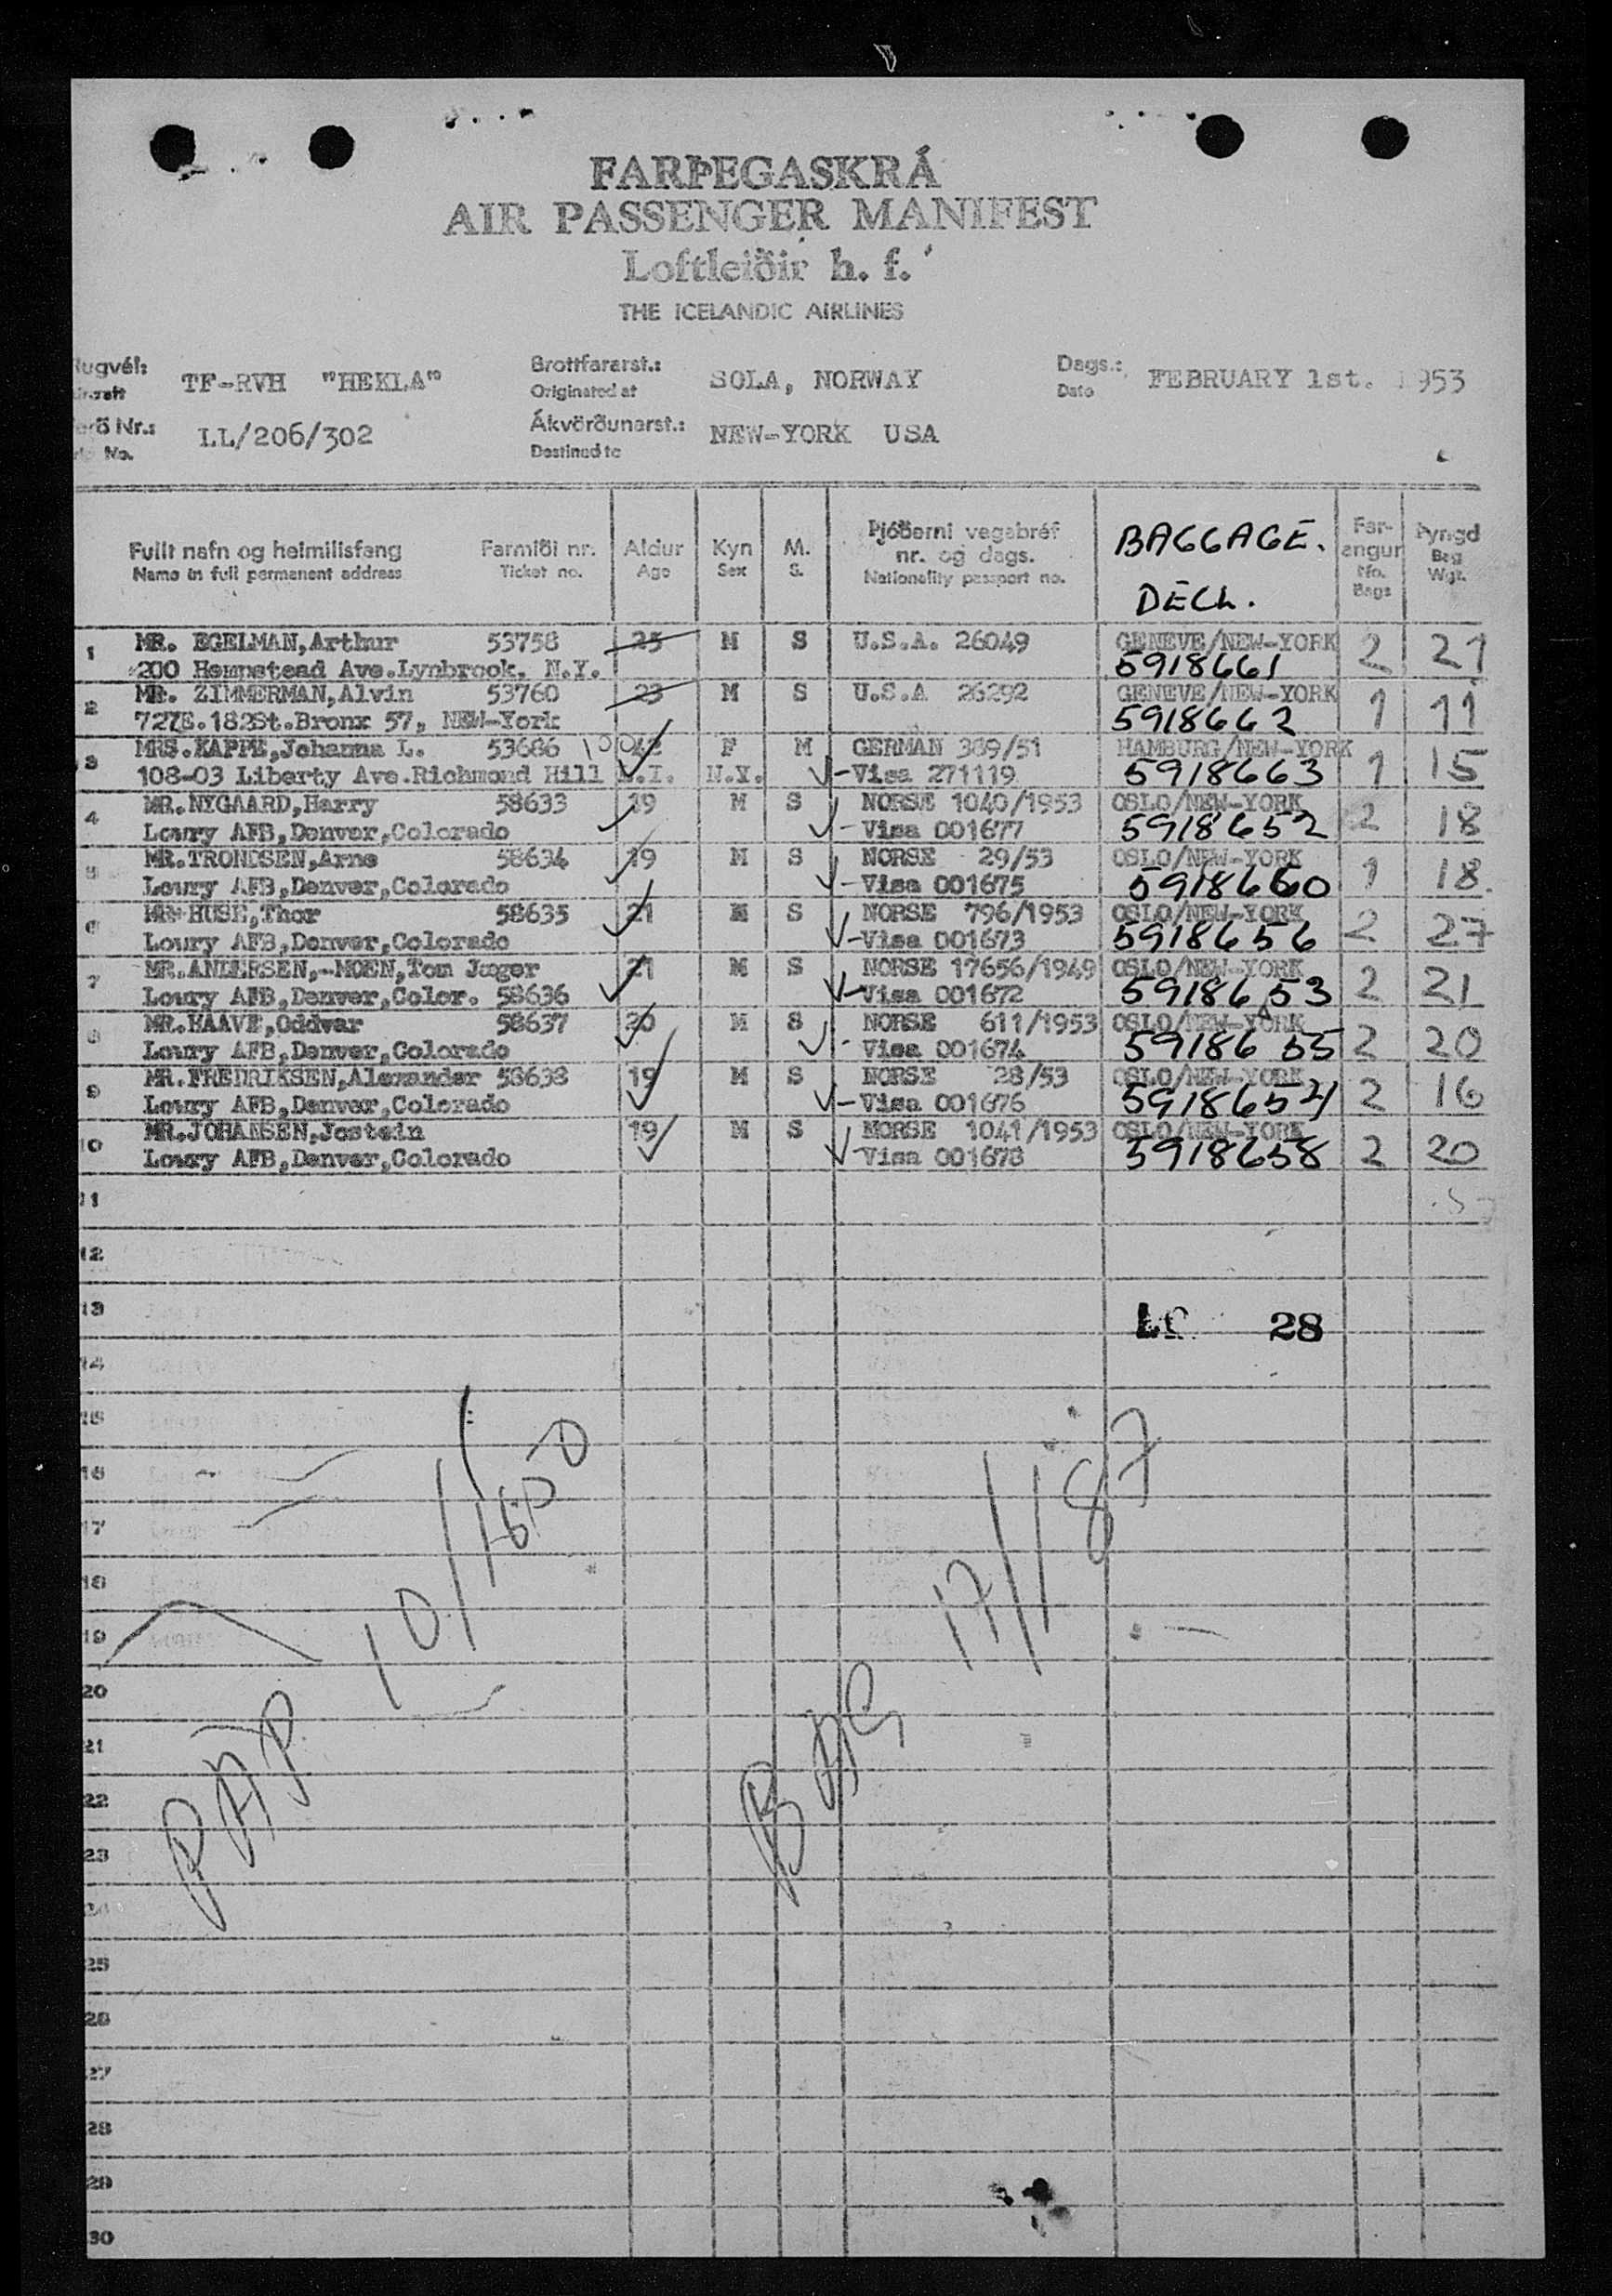 FARÞEGASKRÁ
AIR PASSENGER MANIFEST
Loftleiðir h. f.
THE ICELANDIC AIRLINES
lugvél: TF-RVH "HEKLA" Brottfararst.: SOLA, NORWAY Dags.: FEBRUARY 1st. 1953
Originated at Date
Nr.: LL/206/302 Ákvörðunarst.: NEW-YORK USA
No. Destined to
Fullt nafn og heimilisfang Farmiði nr. Aldur Kyn M. Þjóðerni vegabréf BAGGAGE. Far- Þyngd
Name in full permanent address Ticket no. Age Sex S. nr. og dags. angur Bag
Nationality passport no. DECL. No. Wgt.
Bags
1 MR. EGELMAN,Arthur 53758 25 M S U.S.A. 26049 GENEVE/NEW-YORK 2 21
200 Hempstead Ave.Lynbrook. N.Y. 5918661
2 MR. ZIMMERMAN,Alvin 53760 23 M S U.S.A 26292 GENEVE/NEW-YORK 1 11
727E.182St.Bronx 57, NEW-York 5918662
3 MRS.KAPPE,Johanna L. 53686 42 F M GERMAN 389/51 HAMBURG/NEW-YORK 1 15
108-03 Liberty Ave.Richmond Hill L.I. N.Y. -Visa 271119 5918663
4 MR.NYGAARD,Harry 58633 19 M S NORSE 1040/1953 OSLO/NEW-YORK 2 18
Lowry AFB,Denver,Colorado -Visa 001677 5918652
5 MR.TRONDSEN,Arne 58634 19 M S NORSE 29/53 OSLO/NEW-YORK 1 18
Lowry AFB,Denver,Colorado -Visa 001675 5918660
6 MR HUSE,Thor 58635 21 M S NORSE 796/1953 OSLO/NEW-YORK 2 27
Lowry AFB,Denver,Colorado -Visa 001673 5918656
7 MR.ANDERSEN,-MOEN,Tom Jæger 21 M S NORSE 17656/1949 OSLO/NEW-YORK 2 21
Lowry AFB,Denver,Color. 58636 -Visa 001672 5918653
8 MR.HAAVE,Oddvar 58637 20 M S NORSE 611/1953 OSLO/NEW-YORK 2 20
Lowry AFB,Denver,Colorado Visa 001674 5918655
9 MR.FREDRIKSEN,Alexander 58638 19 M S NORSE 28/53 OSLO/NEW-YORK 2 16
Lowry AFB,Denver,Colorado -Visa 001676 5918654
10 MR.JOHANSEN,Jostein 19 M S NORSE 1041/1953 OSLO/NEW-YORK 2 20
Lowry AFB,Denver,Colorado -Visa 001678 5918658
11
12
13 28
14
15
16
17
18
19
20
21
22
23
25
26
27
28
29
30
PAP 10/1600
BAG 17/187